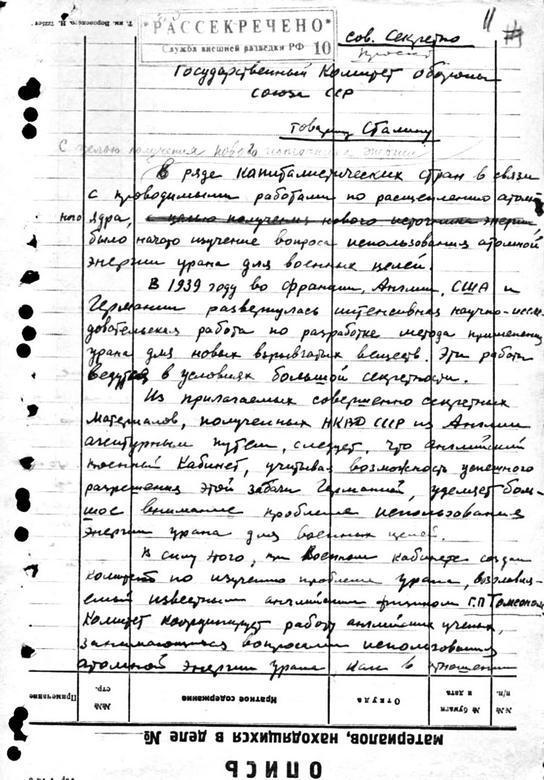 "РАССЕКРЕЧЕНО"
Служба внешней разведки РФ 10
11
Сов. Секретно
Государственный Комитет Обороны
Союза ССР
товарищу Сталину
с целью получения нового источника энергии
В ряде капиталистических стран в связи
с проводимыми работами по расщеплению атом-
ного ядра, с целью получения нового источника энергии,
было начато изучение вопроса использования атомной
энергии урана для военных целей.
В 1939 году во Франции, Англии, США и
Германии развернулась интенсивная научно-иссле-
довательская работа по разработке метода применения
урана для новых взрывчатых веществ. Эти работы
ведутся в условиях большой секретности.
Из прилагаемых совершенно секретных
материалов, полученных НКВД СССР из Англии
агентурным путем, следует, что английский
Военный Кабинет, учитывая возможность успешного
разрешения этой задачи Германией, уделяет боль-
шое внимание проблеме использования
энергии урана для военных целей.
В силу этого, при Военном кабинете создан
комитет по изучению проблемы урана, возглавля-
емый известным английским физиком Г.П. Томсоном.
Комитет координирует работу английских ученых,
занимающихся вопросами использования
атомной энергии урана как в отношении
№№ п/п.
№ бумаги и дата
Откуда
Краткое содержание
№№ стр.
Примечание
материалов, находящихся в деле №
ОПИСЬ